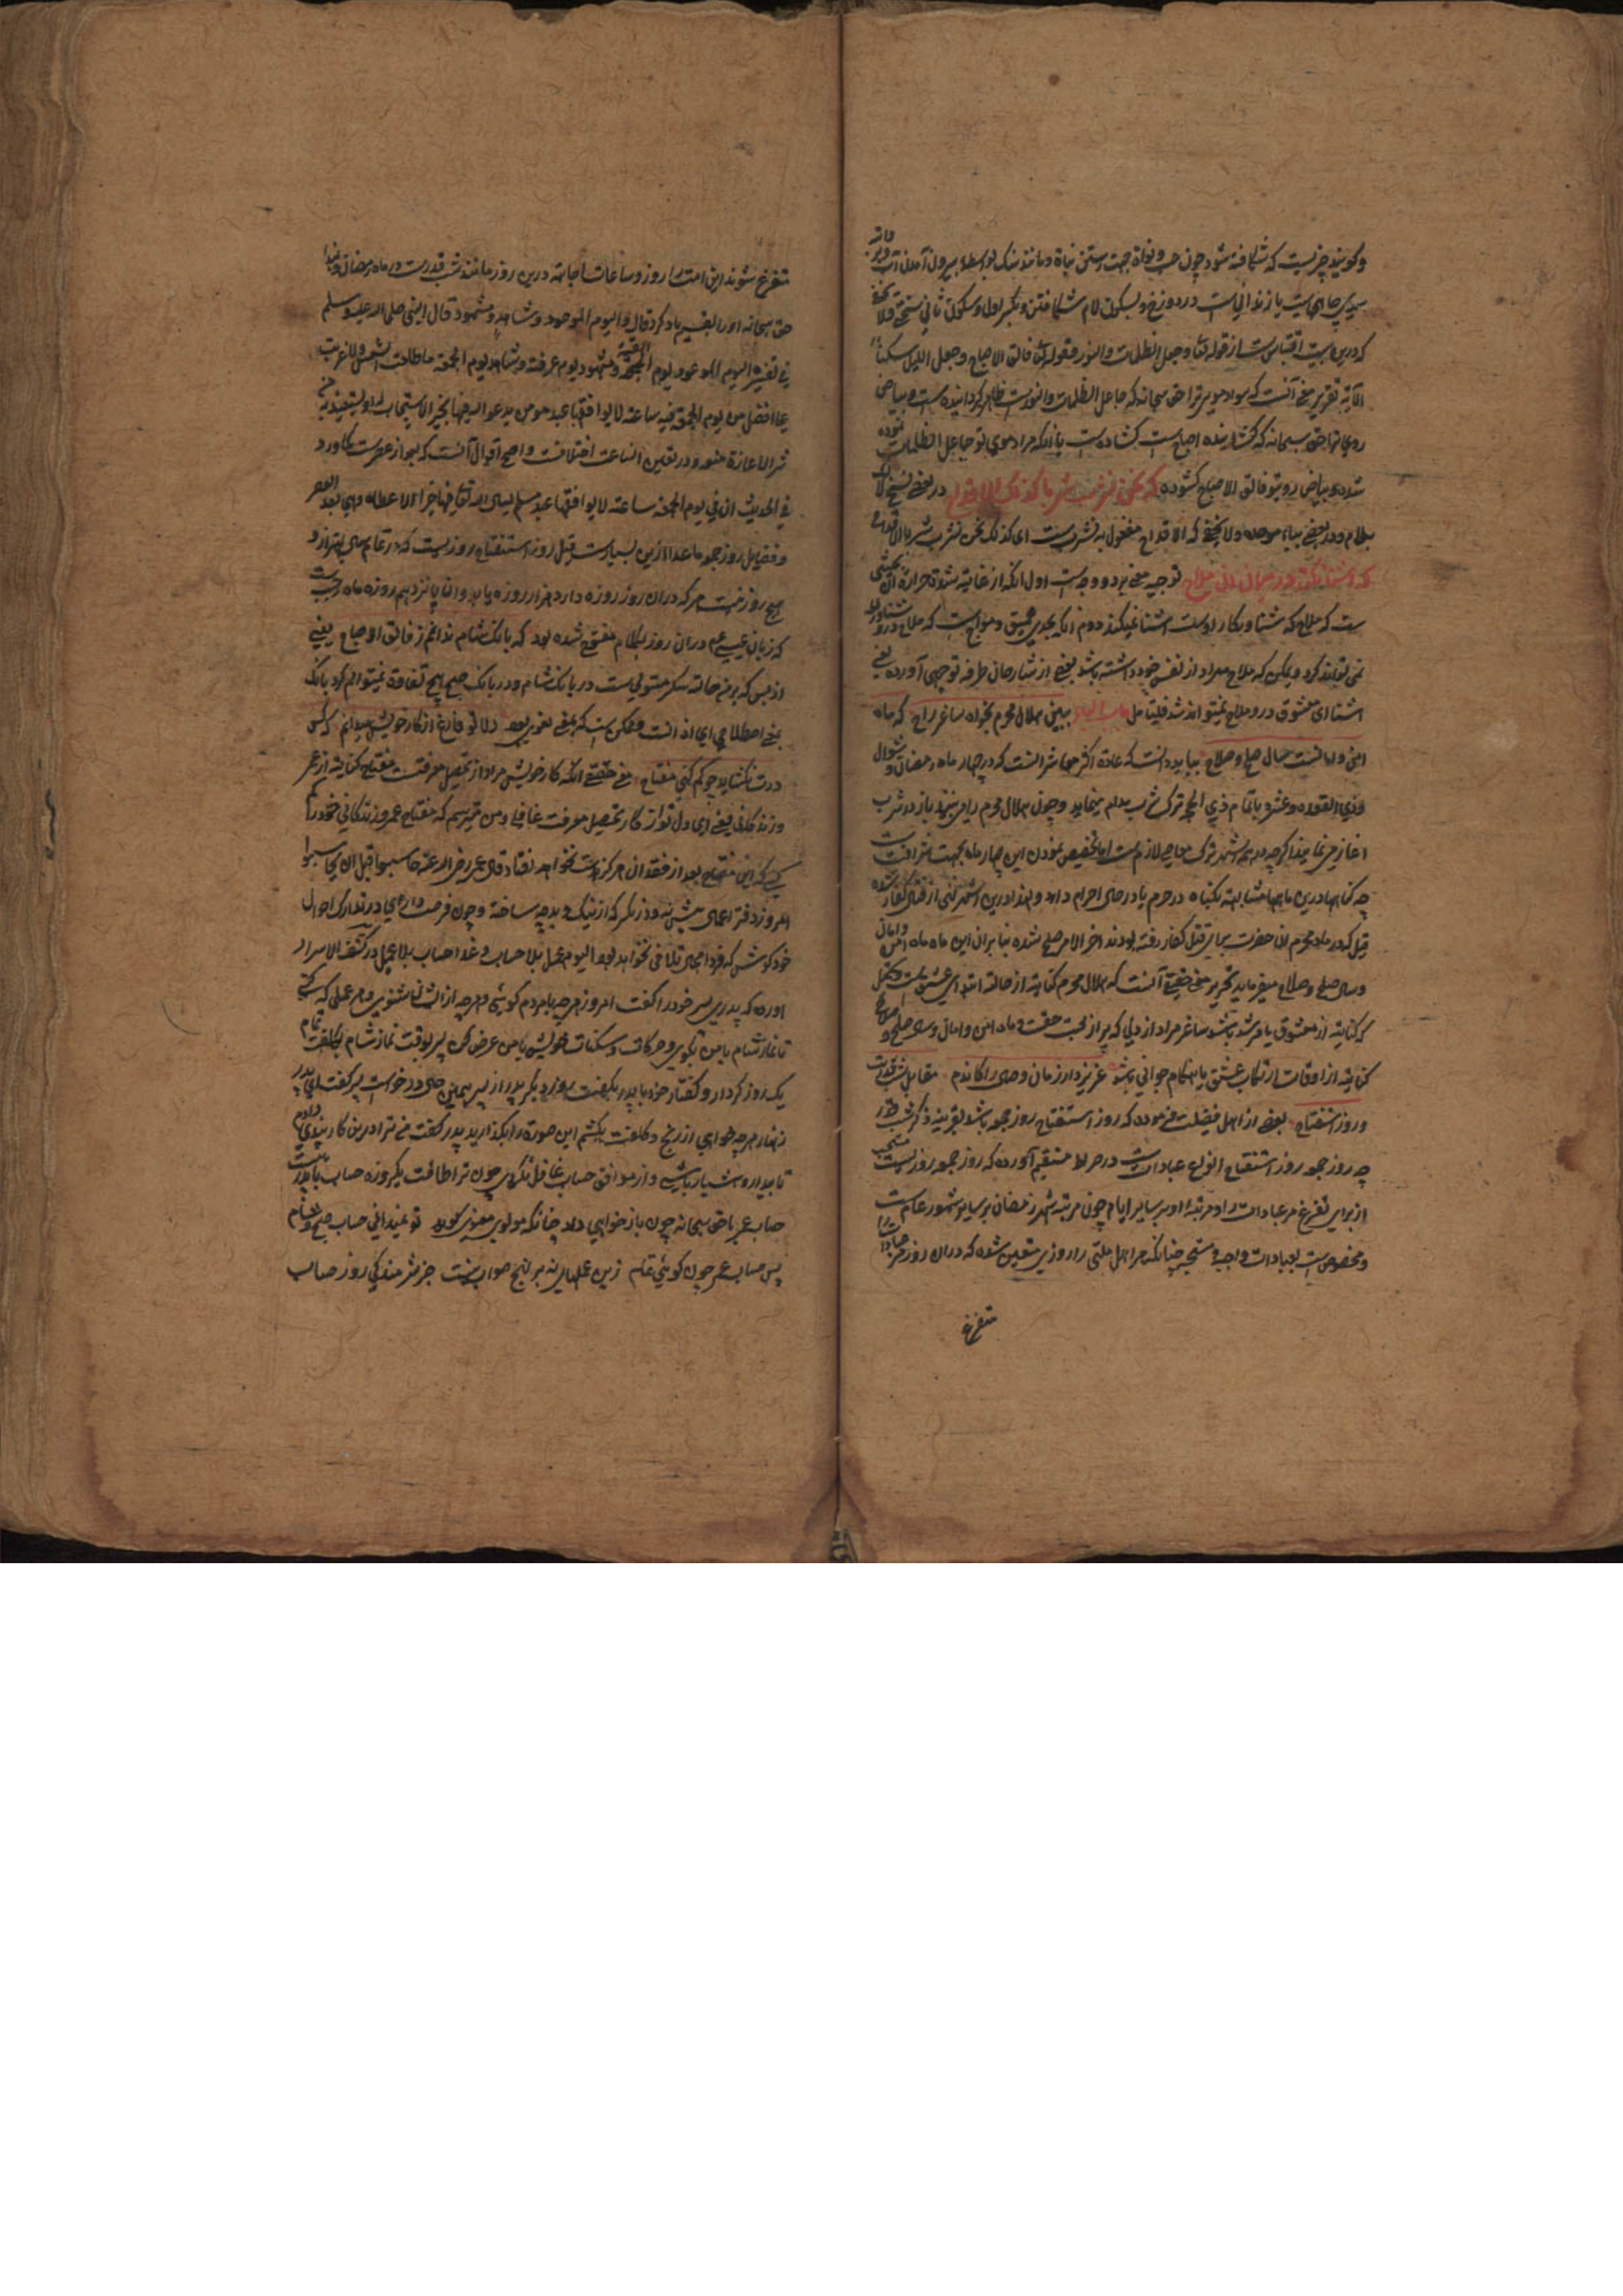 و گویند چیزیست که شکافته شود چون حب و نواة جهت رستن نباة و مانند سنک بواسطه بیرون آمدن آب
که درین بیت اقتباس است از قوله تعا و جعل الظلمات و النور و قوله تعا فالق الاصباح و جعل اللیل سکنا
الآیة تقریر معنی آنست که سواد موی ترا حق سبحانه که جاعل الظلمات و النور است ظاهر کردانیده است و بیاض
روی ترا حق سبحانه که کشاینده اصباح است کشاده است یا آنکه مراد موی تو جاعل الظلمات
شده و بیاض روی تو فالق الاصباح کشوده که نحن نشرب شربا کذلک الاقداح در بعضی نسخ
بلام و در بعضی بباء موحده ولا یخفی که الاقداح مفعول به نشرب است ای کذلک نحن نشرب شربا الاقداح
که آشنا نکند در میان آن ملاح توجیه معنی بر دو وجه است اول آنکه از غایة شدة حرارة آن
ست که ملاح که شناوری کار اوست آشنا نمیکند دوم آنکه بحدی عمیق و مواج است که ملاح درو
نمی تواند کرد و یمکن که ملاح مراد از نفس خود داشته باشد بعضی از شارحان طرفه توجیهی آورده یعنی
آشنا ای معشوق در و ملاح نمیتواند شد فلیتامل ببین هلال محرم بخواه ساغر راح که ماه
امن و امانست سال صلح و صلاح بباید دانست که عادة اکثر معاشر آنست که در چهار ماه رمضان و شوال
و ذی القعده و عشره یا تمام ذی الحجه ترک شرب مدام مینماید و چون هلال محرم را می بینند باز در شرب
آغاز می نمایند اکرچه در همه اشهر ترک معاصی لازم است اما تخصیص نمودن این چهار ماه بجهت شرافت
چه کناهها درین ماهها مشابهت بکناه در حرم یا در حال احرام دارد و لهذا درین اشهر نهی از قتال کفار شده
قیل که در ماه محرم آن حضرت برای قتل کفار رفته بودند آخر الامر صلح شده بنا بران این ماه ماه امن و امان
و سال صلح و صلاح میفرماید تحریر معنی حقیقی آنست که هلال محرم کنایة از حالة ابتدای عشق است
که کنایة از معشوق یا مرشد باشد ساغر مراد از دلی که پر از محبت حقست و ماه امن و امان و سال صلح و صلاح
کنایة از اوقات ارتکاب عشق یا هنکام جوانی باشد عزیز دار زمان وصال را کاندم مقابل شب قدرست
و روز استفتاح بعضی از اهل فضیلت فرموده که روز استفتاح روز جمعه باشد بقرینه ذکر شب قدر
چه روز جمعه روز استفتاح انواع عبادات است در صراط مستقیم آورده که روز جمعه روزیست مستحب
از برای تفرغ مر عبادات را و مرتبة او بر سایر ایام چون مرتبة شهر رمضان بر سایر شهور عام است
و مخصوص است بعبادات واجبه و مستحبه چنانکه مر اهل ملتی را روزی متعین شده که دران روز مر عبادات را
متفرغ
متفرغ شوند این امت را روز و ساعات اجابة درین روز مانند شب قدرست در ماه رمضان
حق سبحانه او را بقسم یاد کرد قال و الیوم الموعود و شاهد و مشهود قال النبی صلی الله علیه و سلم
فی تفسیره الیوم الموعود یوم القیمة و مشهود یوم عرفة و شاهد یوم الجمعة ما طلعت الشمس و لا غربت
علی افضل من یوم الجمعة فیه ساعة لا یوافقها عبد مومن یدعو الله فیها بخیر الا استجاب له و لا یستعیذ به من
شر الا اعاذه منه و در تعین آن ساعت اختلافست و اصح اقوال آنست که بعد از عصر است کما ورد
فی الحدیث ان فی یوم الجمعة ساعة لا یوافقها عبد مسلم یسال الله تعا فیها خیرا الا اعطاه و هی بعد العصر
و فضایل روز جمعه ما عدا ازین بسیارست قیل روز استفتاح روزیست که در تمام سال بهتر ازو
هیچ روز نیست هر که دران روز روزه دارد هزار روزه یابد و آن پانزدهم روزه ماه رجب است
که زبان عیسی عم دران روز بکلام مفتوح شده بود که بانک شام ندانم ز فالق الاصباح یعنی
از بس که بر من حالة سکر مستولی است در بانک شام و در بانک صبح هیچ تفاوة نمیتوانم کرد بانک
بمعنی اصطلاحی ای اذانست و ممکن است که بمعنی لغوی بود دلا تو فارغ از کار خویش میدانم که کس
درت نکشاید چو کم کنی مفتاح معنی حقیقی آنکه کار خویش مراد از تحصیل معرفتست مفتاح کنایة از عمر
و زندکانی یعنی ای دل تو از کار تحصیل معرفت غافلی و من میترسم که مفتاح عمر و زندکانی خود را کم
کنی که این مفتاح بعد از فقدان هرکز بدست نخواهد افتاد قال عمر رضی الله عنه حاسبوا قبل ان تحاسبوا
امروز دفتر اعمال پیش نه و در نکر که از نیک و بد چه ساخته و چون فرصت داری در تدارک احوال
خود کوش که فردا مجال تلافی نخواهد بود الیوم عمل بلا حساب و غدا حساب بلا عمل در کشف الاسرار
آورده که پدری پسر خود را کفت امروز هرچه بامردم کوئی و هرچه از ایشان شنوی و هر عملی که کنی
تا نماز شام با من بکوی و حرکات و سکنات خویش با من عرض کن پسر بوقت نماز شام بکلفت تمام
یک روز کردار و کفتار خود با پدر بکفت روز دیکر پدر از پسر همین حال درخواست پسر کفت ای پدر
زنهار هرچه خواهی از رنج و کلفت بکشم این صورة را بکذارید پدر کفت من ترا درین کار پندی دادم
تا بیدار و هشیار باشی و از موافق حساب غافل نکردی چون ترا طاقت یکروزه حساب با پدر نیست
حساب عمر با حق سبحانه چون باز خواهی داد چنانکه مولوی معنوی کوید تو نمیدانی حساب صبح و شام
پس حساب عمر چون کوئی تمام زین عملهای نه بر نهج صواب نیست جز شرمندکی روز حساب